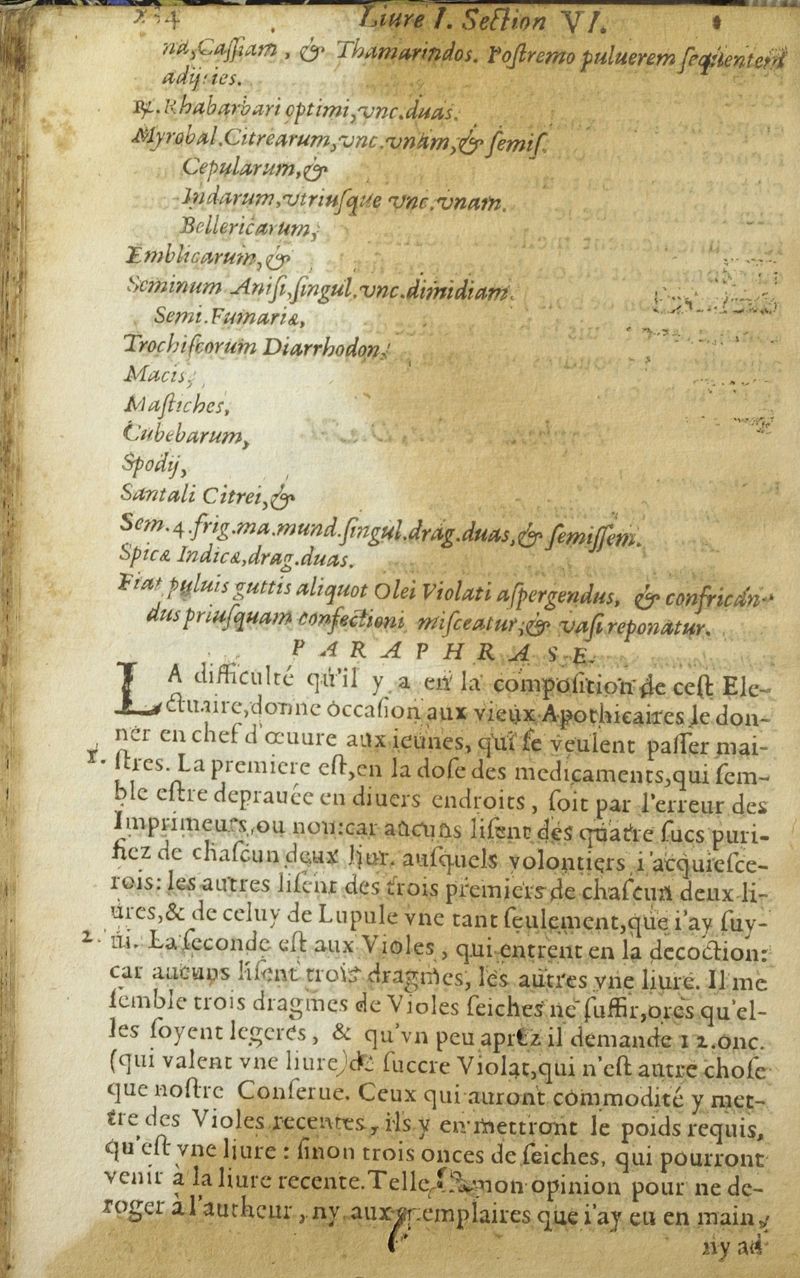 234 Liure I. Section VI.
na, Caſſiam, & Thamarindos. Poſtremo puluerem ſequentem
adijcies.
℞. Rhabarbari optimi, vnc. duas.
Myrobal. Citrearum, vnc. vnam, & ſemiſ.
Cepularum, &
Indarum, vtriuſque vnc. vnam.
Bellericarum,
Emblicarum, &
Seminum Aniſi, ſingul. vnc. dimidiam.
Semi. Fumariæ,
Trochiſcorum Diarrhodon,
Macis,
Maſtiches,
Cubebarum,
Spodij,
Santali Citrei, &
Sem. 4. frig. ma. mund. ſingul. drag. duas, & ſemiſſem.
Spicæ Indicæ, drag. duas.
Fiat puluis guttis aliquot Olei Violati aſpergendus, & confrican-
dus priuſquam confectioni miſceatur, & vaſi reponatur.
PARAPHRASE.
LA difficulté qu'il y a en la compoſition de ceſt Ele-
ctuaire, donne occaſion aux vieux Apothicaires le don-
ner en chef d'œuure aux ieunes, qui ſe veulent paſſer mai-
1. ſtres. La premiere eſt, en la doſe des medicaments, qui ſem-
ble eſtre deprauée en diuers endroits, ſoit par l'erreur des
Imprimeurs, ou non: car aucuns liſent des quatre ſucs puri-
fiez de chaſcun deux liur. auſquels volontiers i'acquieſce-
rois: les autres liſent des trois premiers de chaſcun deux li-
ures, & de celuy de Lupule vne tant ſeulement, que i'ay ſuy-
2. ui. La ſeconde eſt aux Violes, qui entrent en la decoction:
car aucuns liſent trois dragmes, les autres vne liure. Il me
ſemble trois dragmes de Violes ſeiches ne ſuffir, ores qu'el-
les ſoyent legeres, & qu'vn peu aprez il demande 12. onc.
(qui valent vne liure) de ſuccre Violat, qui n'eſt autre choſe
que noſtre Conſerue. Ceux qui auront commodité y met-
tre des Violes recentes, ils y en mettront le poids requis,
qu'eſt vne liure: ſinon trois onces de ſeiches, qui pourront
venir à la liure recente. Telle mon opinion pour ne de-
roger à l'autheur, ny aux exemplaires que i'ay eu en main,
ny ad